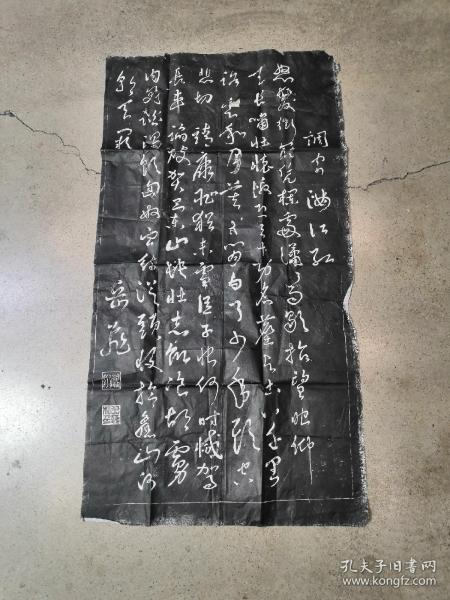 調寄 滿江紅
怒髮衝冠凭欄處瀟瀟雨歇抬望眼仰
天長嘯壯懷激烈三十功名塵與土八千里
路雲和月莫等閒白了少年頭空
悲切 靖康恥猶未雪臣子恨何時滅駕
長車 踏破賀蘭山缺壯志飢餐胡虜
肉笑談渴飲匈奴血待從頭收拾舊山河
朝天闕
岳飛
孔夫子旧书网
www.kongfz.com